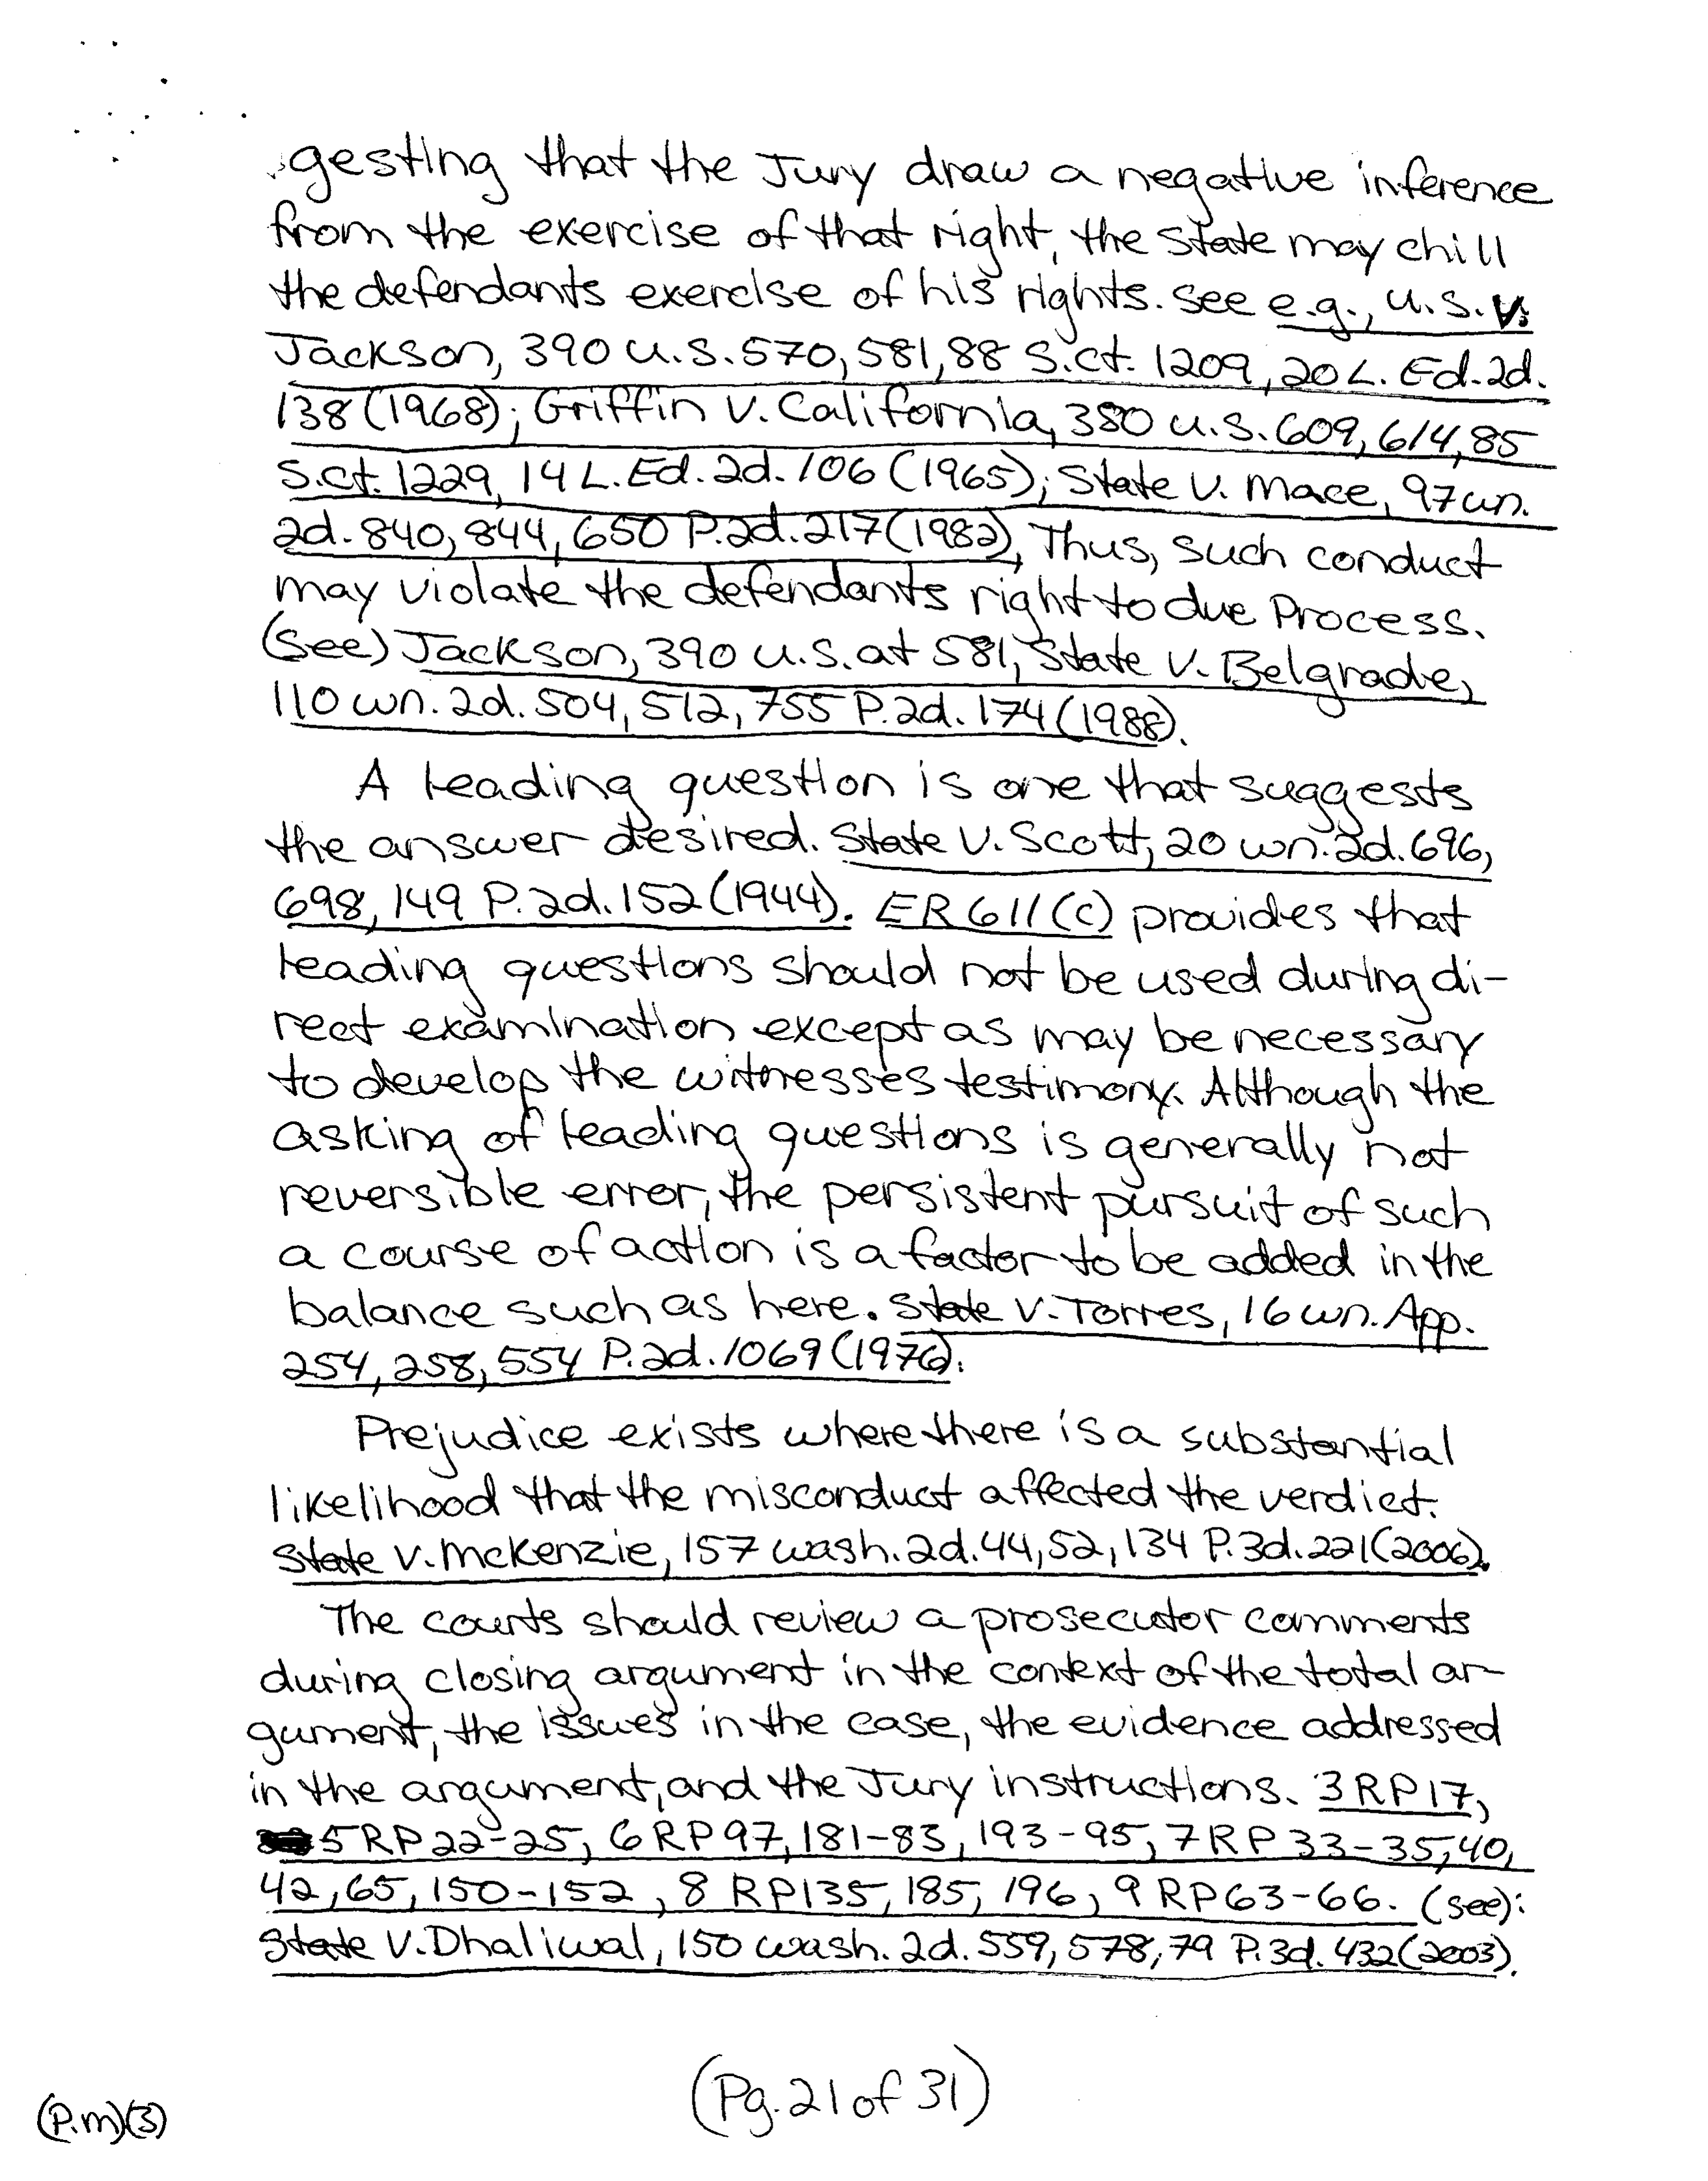 gesting that the Jury draw a negative inference
from the exercise of that right, the State may chill
the defendants exercise of his rights. see e.g., U.S. v.
Jackson, 390 U.S. 570, 581, 88 S.ct. 1209, 20 L. Ed. 2d.
138 (1968); Griffin v. California, 380 U.S. 609, 614, 85
S.ct. 1229, 14 L. Ed. 2d. 106 (1965); State v. Mace, 97 wn.
2d. 840, 844, 650 P.2d. 217 (1982), Thus, such conduct
may violate the defendants right to due Process.
(see) Jackson, 390 U.S. at 581, State v. Belgrade,
110 wn. 2d. 504, 512, 755 P.2d. 174 (1988).
A leading question is one that suggests
the answer desired. State v. Scott, 20 wn. 2d. 696,
698, 149 P.2d. 152 (1944). ER 611 (c) provides that
leading questions should not be used during di-
rect examination except as may be necessary
to develop the witnesses testimony. Although the
asking of leading questions is generally not
reversible error, the persistent pursuit of such
a course of action is a factor to be added in the
balance such as here. State v. Torres, 16 wn. App.
254, 258, 554 P.2d. 1069 (1976).
Prejudice exists where there is a substantial
likelihood that the misconduct affected the verdict.
State v. McKenzie, 157 wash. 2d. 44, 52, 134 P.3d. 221 (2006).
The courts should review a prosecutor comments
during closing argument in the context of the total ar-
gument, the issues in the case, the evidence addressed
in the argument, and the Jury instructions. 3 RP 17,
5 RP 22-25, 6 RP 97, 181-83, 193-95, 7 RP 33-35, 40,
42, 65, 150-152, 8 RP 135, 185, 196, 9 RP 63-66. (see):
State v. Dhaliwal, 150 wash. 2d. 559, 578, 79 P.3d. 432 (2003).
(Pg. 21 of 31)
(P.m)(3)